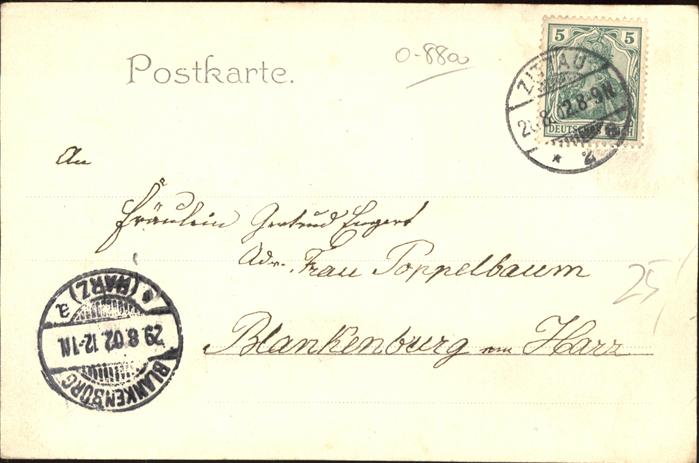 Postkarte.
0-88a
5 5
DEUTSCHES REICH
ZITTAU
8.02.8-9N.
* 2
An
Fräulein Gertrud Engert
Adr. Frau Poppelbaum
Blankenburg am Harz
25
BLANKENBURG
29.8.02.12-1N.
* (HARZ) a